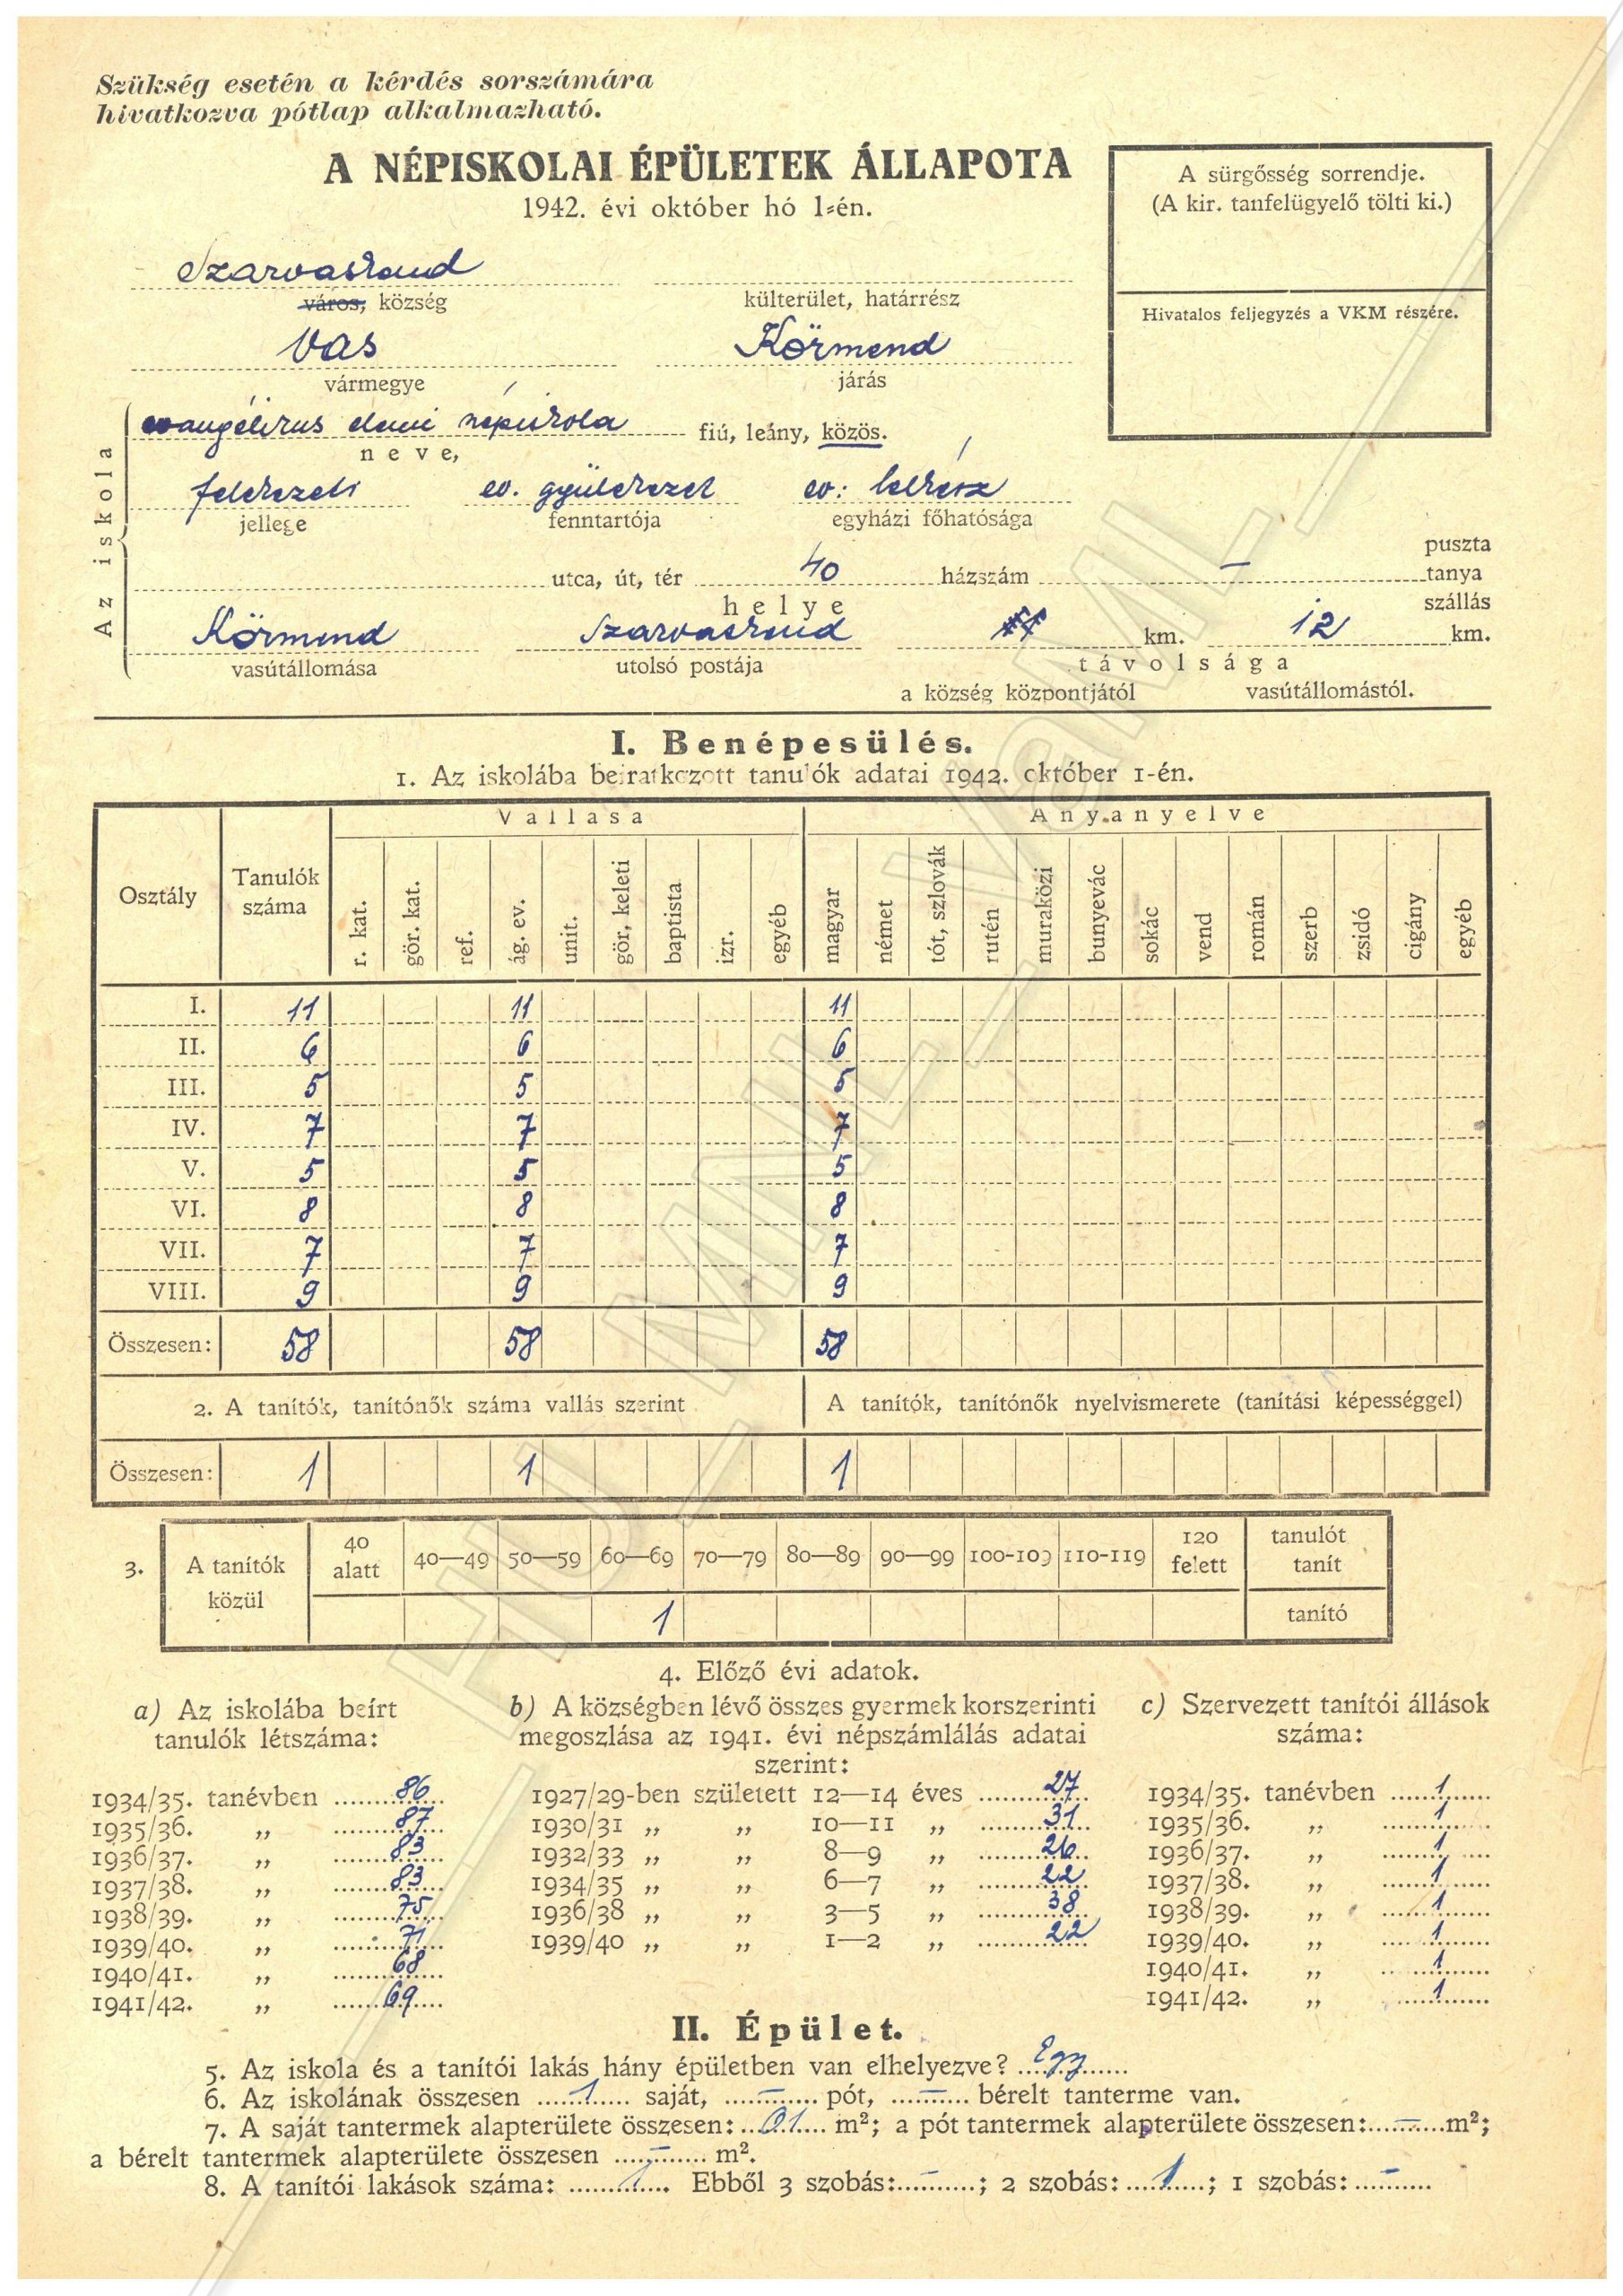 Szükség esetén a kérdés sorszámára
hivatkozva pótlap alkalmazható.
A NÉPISKOLAI ÉPÜLETEK ÁLLAPOTA
1942. évi október hó 1-én.
A sürgősség sorrendje.
(A kir. tanfelügyelő tölti ki.)
Hivatalos feljegyzés a VKM részére.
Szarvaskend
város, község külterület, határrész
Vas Körmend
vármegye járás
Az iskola
evangélikus elemi népiskola fiú, leány, közös.
neve,
felekezeti ev. gyülekezet ev. lelkész
jellege fenntartója egyházi főhatósága
utca, út, tér 40 házszám – puszta
tanya
szállás
helye
Körmend Szarvaskend km. 12 km.
vasútállomása utolsó postája távolsága
a község központjától vasútállomástól.
I. Benépesülés.
1. Az iskolába beiratkozott tanulók adatai 1942. október 1-én.
Osztály Tanulók száma Vallása Anyanyelve
r. kat. gör. kat. ref. ág. ev. unit. gör, keleti baptista izr. egyéb magyar német tót, szlovák rutén muraközi bunyevác sokác vend román szerb zsidó cigány egyéb
I. 11 11 11
II. 6 6 6
III. 5 5 5
IV. 7 7 7
V. 5 5 5
VI. 8 8 8
VII. 7 7 7
VIII. 9 9 9
Összesen: 58 58 58
2. A tanítók, tanítónők száma vallás szerint A tanítók, tanítónők nyelvismerete (tanítási képességgel)
Összesen: 1 1 1
3. A tanítók közül 40 alatt 40—49 50—59 60—69 70—79 80—89 90—99 100-109 110-119 120 felett tanulót tanít
1 tanító
4. Előző évi adatok.
a) Az iskolába beírt
tanulók létszáma:
1934/35. tanévben 86
1935/36. „ 87
1936/37. „ 83
1937/38. „ 83
1938/39. „ 75
1939/40. „ 71
1940/41. „ 68
1941/42. „ 69
b) A községben lévő összes gyermek korszerinti
megoszlása az 1941. évi népszámlálás adatai
szerint:
1927/29-ben született 12—14 éves 27
1930/31 „ „ 10—11 „ 31
1932/33 „ „ 8—9 „ 26
1934/35 „ „ 6—7 „ 22
1936/38 „ „ 3—5 „ 38
1939/40 „ „ 1—2 „ 22
c) Szervezett tanítói állások
száma:
1934/35. tanévben 1
1935/36. „ 1
1936/37. „ 1
1937/38. „ 1
1938/39. „ 1
1939/40. „ 1
1940/41. „ 1
1941/42. „ 1
II. Épület.
5. Az iskola és a tanítói lakás hány épületben van elhelyezve? Egy
6. Az iskolának összesen 1 saját, – pót, – bérelt tanterme van.
7. A saját tantermek alapterülete összesen: m²; a pót tantermek alapterülete összesen: – m²;
a bérelt tantermek alapterülete összesen – m².
8. A tanítói lakások száma: 1 Ebből 3 szobás: – ; 2 szobás: 1 ; 1 szobás: –
HU_MNL_VaML